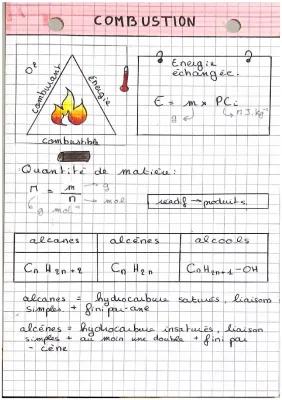 COMBUSTION
O²
comburant
énergie
combustible
Energie
échangée.
E = m × PCi
g
MJ.kg⁻¹
Quantité de matière:
M = m/n
g
mol
g mol⁻¹
réactif → produits.
alcanes alcènes alcools
CnH2n+2 CnH2n CnH2n+1-OH
alcanes = hydrocarbure saturés, liaison
simples + fini par -ane
alcénes = hydrocarbure insaturés, liaison
simples + au moin une double + fini par
- cène